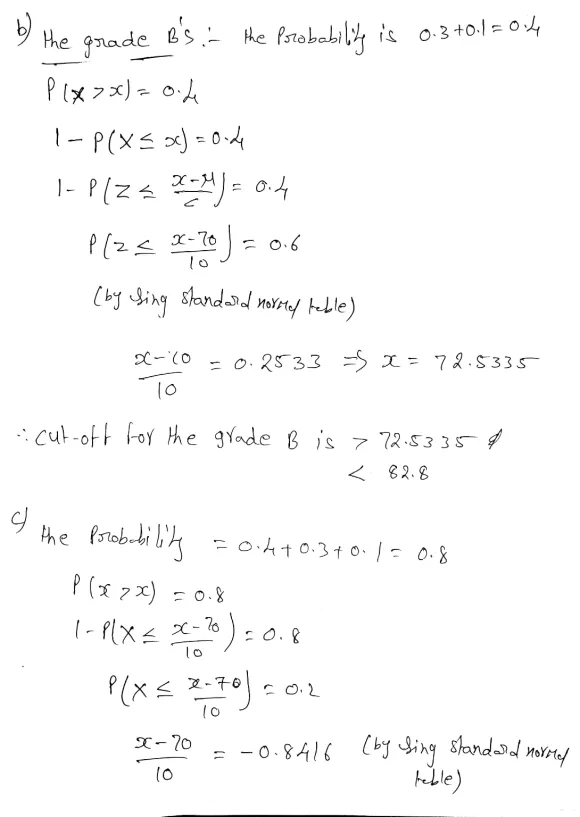 b) the grade B's :- the Probability is 0.3+0.1=0.4
P(X>x)=0.4
1-P(X≤x)=0.4
1-P(Z≤ (x-μ)/σ)=0.4
P(z≤ (x-70)/10)=0.6
(by using standard normal table)
(x-70)/10 = 0.2533 ⇒ x = 72.5335
∴ cut-off for the grade B is > 72.5335 &
< 82.8
c) the Probability = 0.4+0.3+0.1=0.8
P(x>x)=0.8
1-P(X≤ (x-70)/10)=0.8
P(X≤ (x-70)/10)=0.2
(x-70)/10 = -0.8416 (by using standard normal
table)